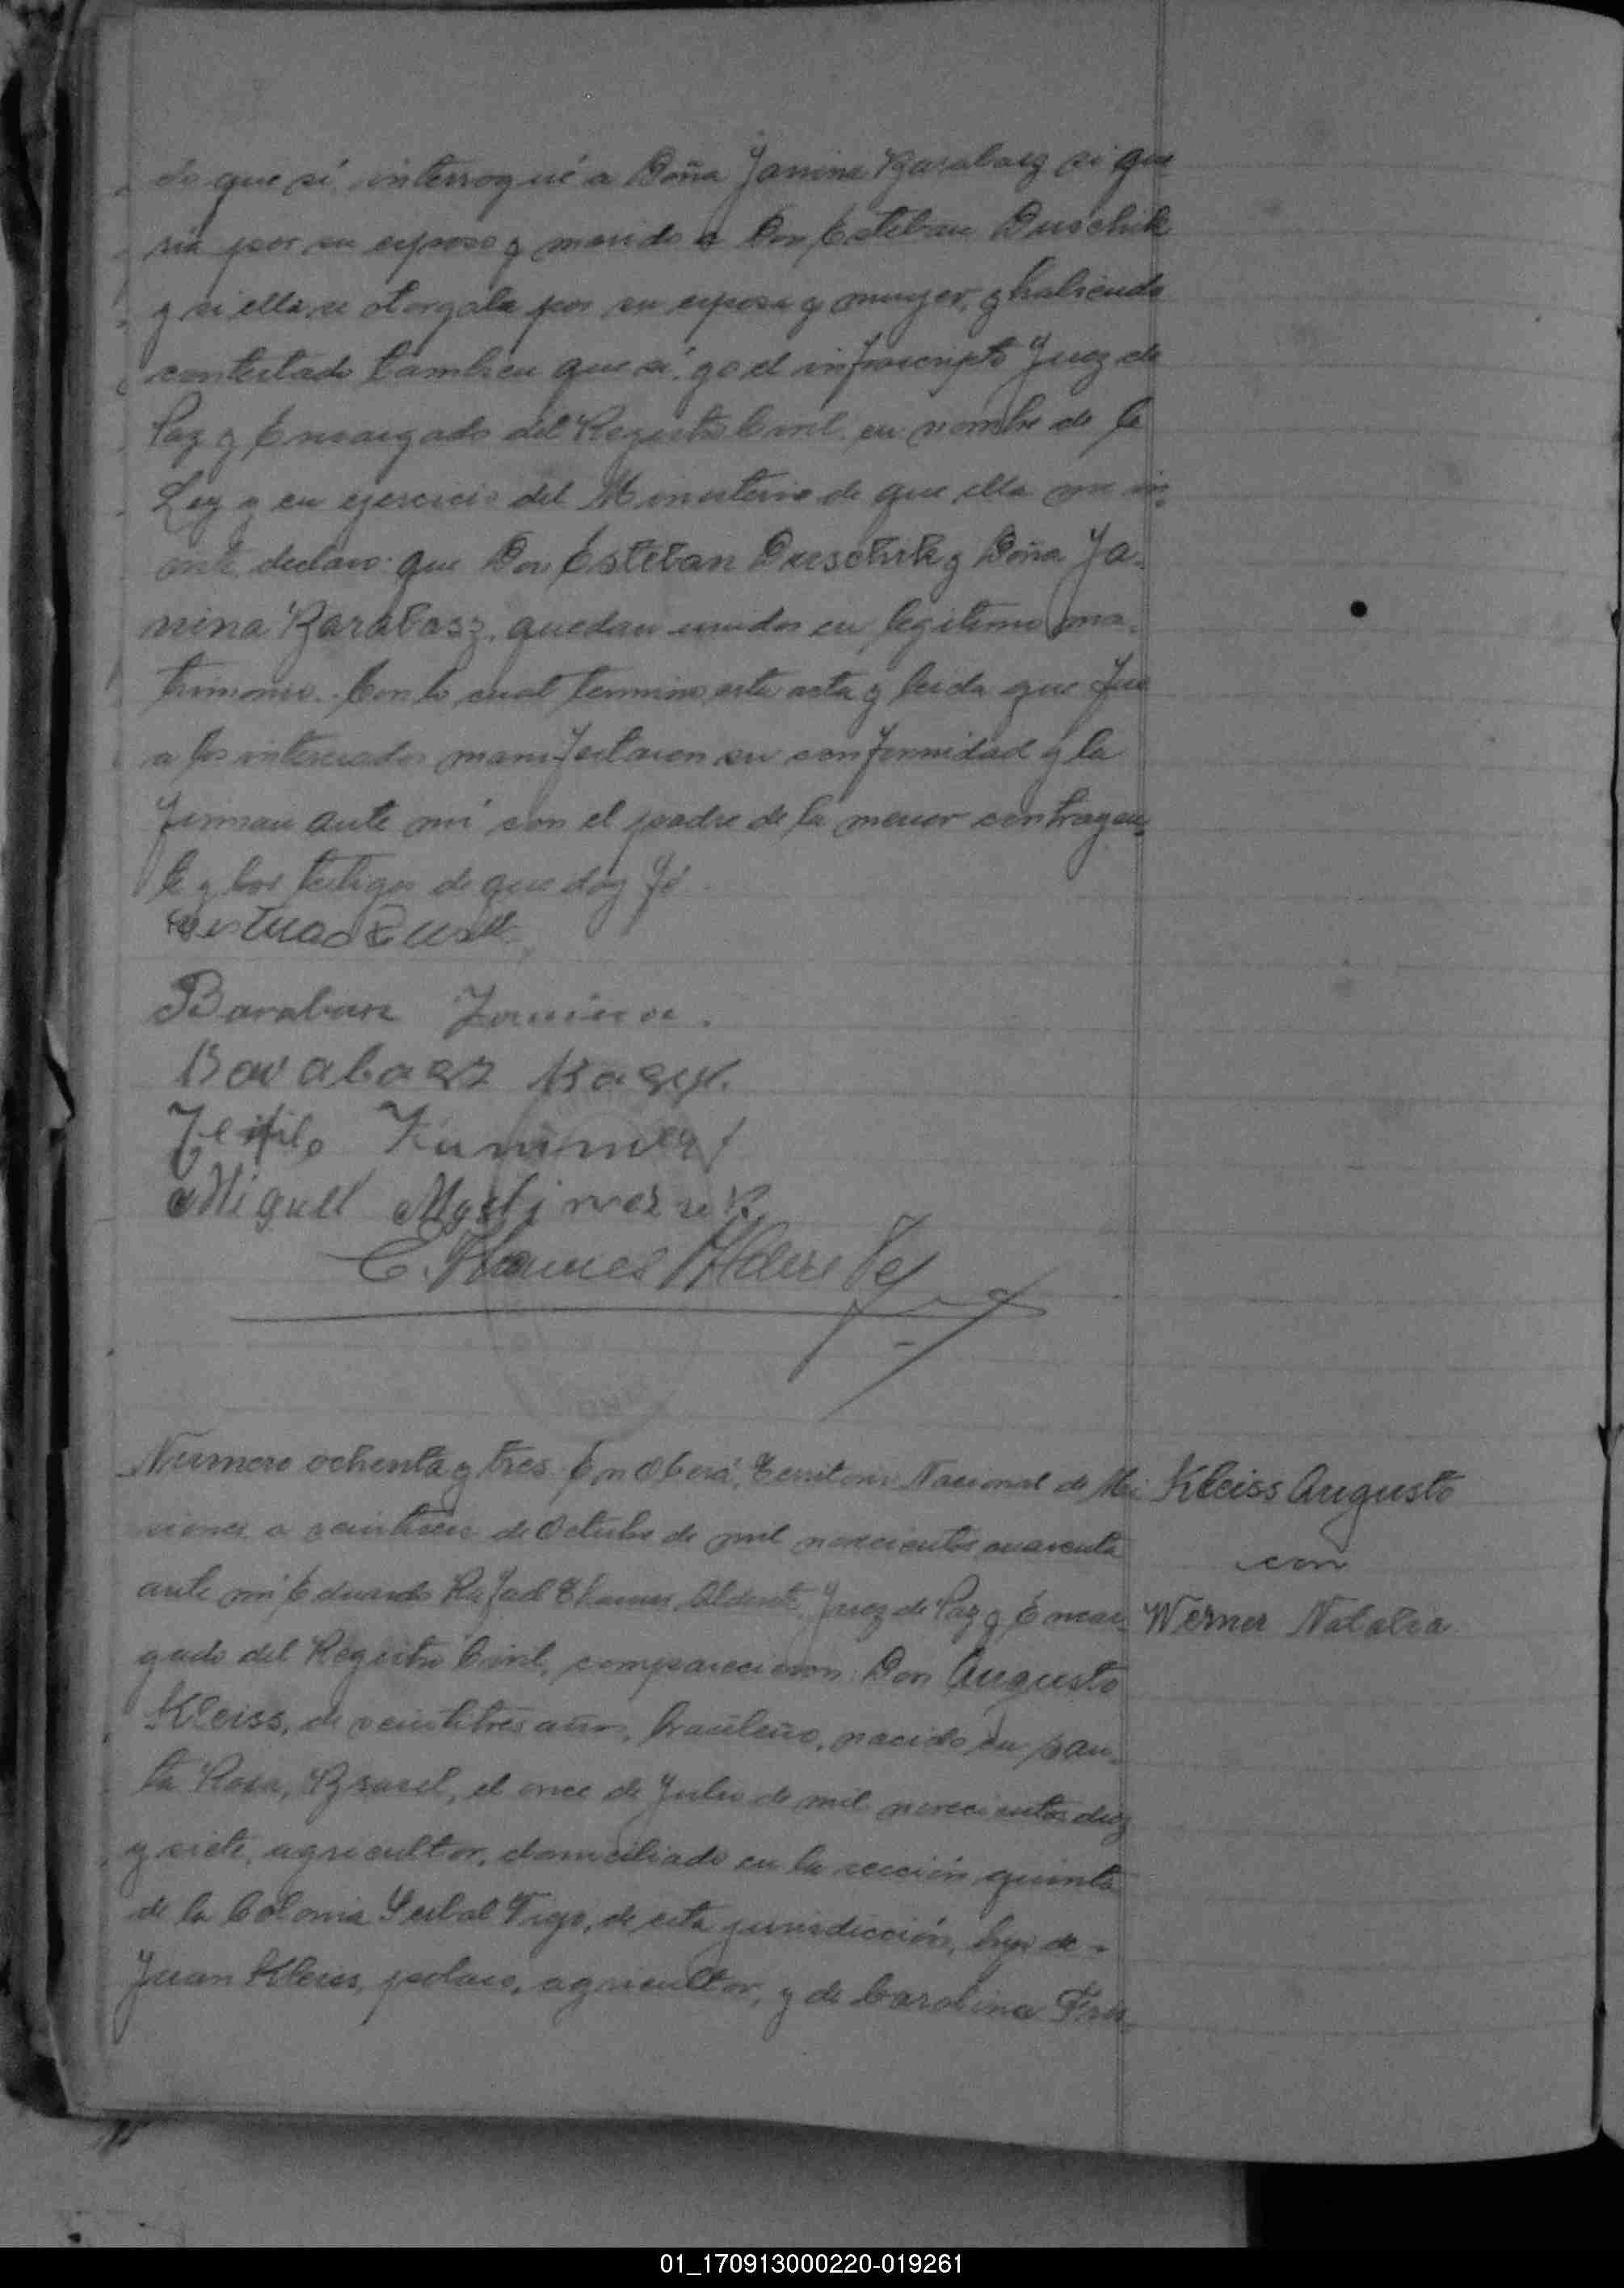 do que sí interrogué a Doña Janina Barabasz si que
ria por su esposo y marido a Don Esteban Duschik
y si ella se otorgaba por su esposa y mujer, y habiendo
contestado tambien que sí, yo el infrascripto Juez de
Paz y Encargado del Registro Civil, en nombre de la
Ley y en ejercicio del Ministerio de que ella me in-
viste declaro: que Don Esteban Duschik y Doña Ja-
nina Barabasz, quedan unidos en legitimo ma-
trimonio. Con lo cual termino esta acta y leida que fue
a los interesados manifestaron su conformidad y la
firman ante mí con el padre de la menor contrayen-
te y los testigos de que doy fé.
Barabasz Janina.
Barabasz
Teofilo
Miguel
E. Thames Alderete
Numero ochenta y tres. En Oberá, Territorio Nacional de Mi
siones, a veintiseis de Octubre de mil novecientos cuarenta
ante mí Eduardo Rafael Thames Alderete, Juez de Paz y Encar-
gado del Registro Civil, comparecieron: Don Augusto
Kleiss, de veintitres años, brasileño, nacido en San-
ta Rosa, Brasil, el once de Julio de mil novecientos diez
y siete, agricultor, domiciliado en la sección quinta
de la Colonia Yerbal Viejo, de esta jurisdicción, hijo de
Juan Kleiss, polaco, agricultor, y de Carolina
Kleiss Augusto
con
Werner Natalia